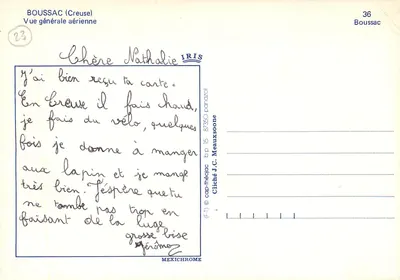 BOUSSAC (Creuse)
Vue générale aérienne
36
Boussac
23
Chère Nathalie
IRIS
J'ai bien reçu ta carte.
En Creuse il fais chaud,
je fais du vélo, quelques
fois je donne à manger
aux lapin et je mange
très bien. J'éspère que tu
ne tombe pas trop en
faisant de la luge
grosse bise
Jérôme
MEXICHROME
cap-théojac b.p. 15 87350 panazol
Cliché J.C. Meauxsoone